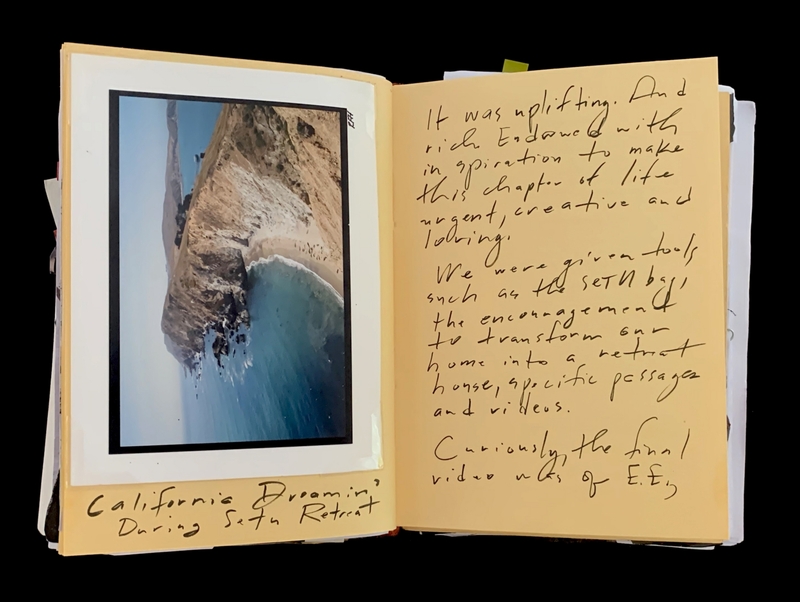 California Dreamin'
During SeTH Retreat
It was uplifting. And
rich Endowed with
inspiration to make
this chapter of life
urgent, creative and
loving.
We were given tools
such as the SETH bag,
the encouragement
to transform our
home into a retreat
house, specific passages
and videos.
Curiously, the final
video was of E.E,